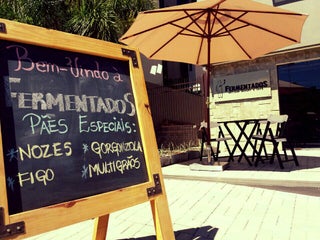 Bem-Vindo a
FERMENTADOS
PÃES ESPECIAIS:
*NOZES *GORGONZOLA
*FIGO *MULTIGRÃOS
FERMENTADOS